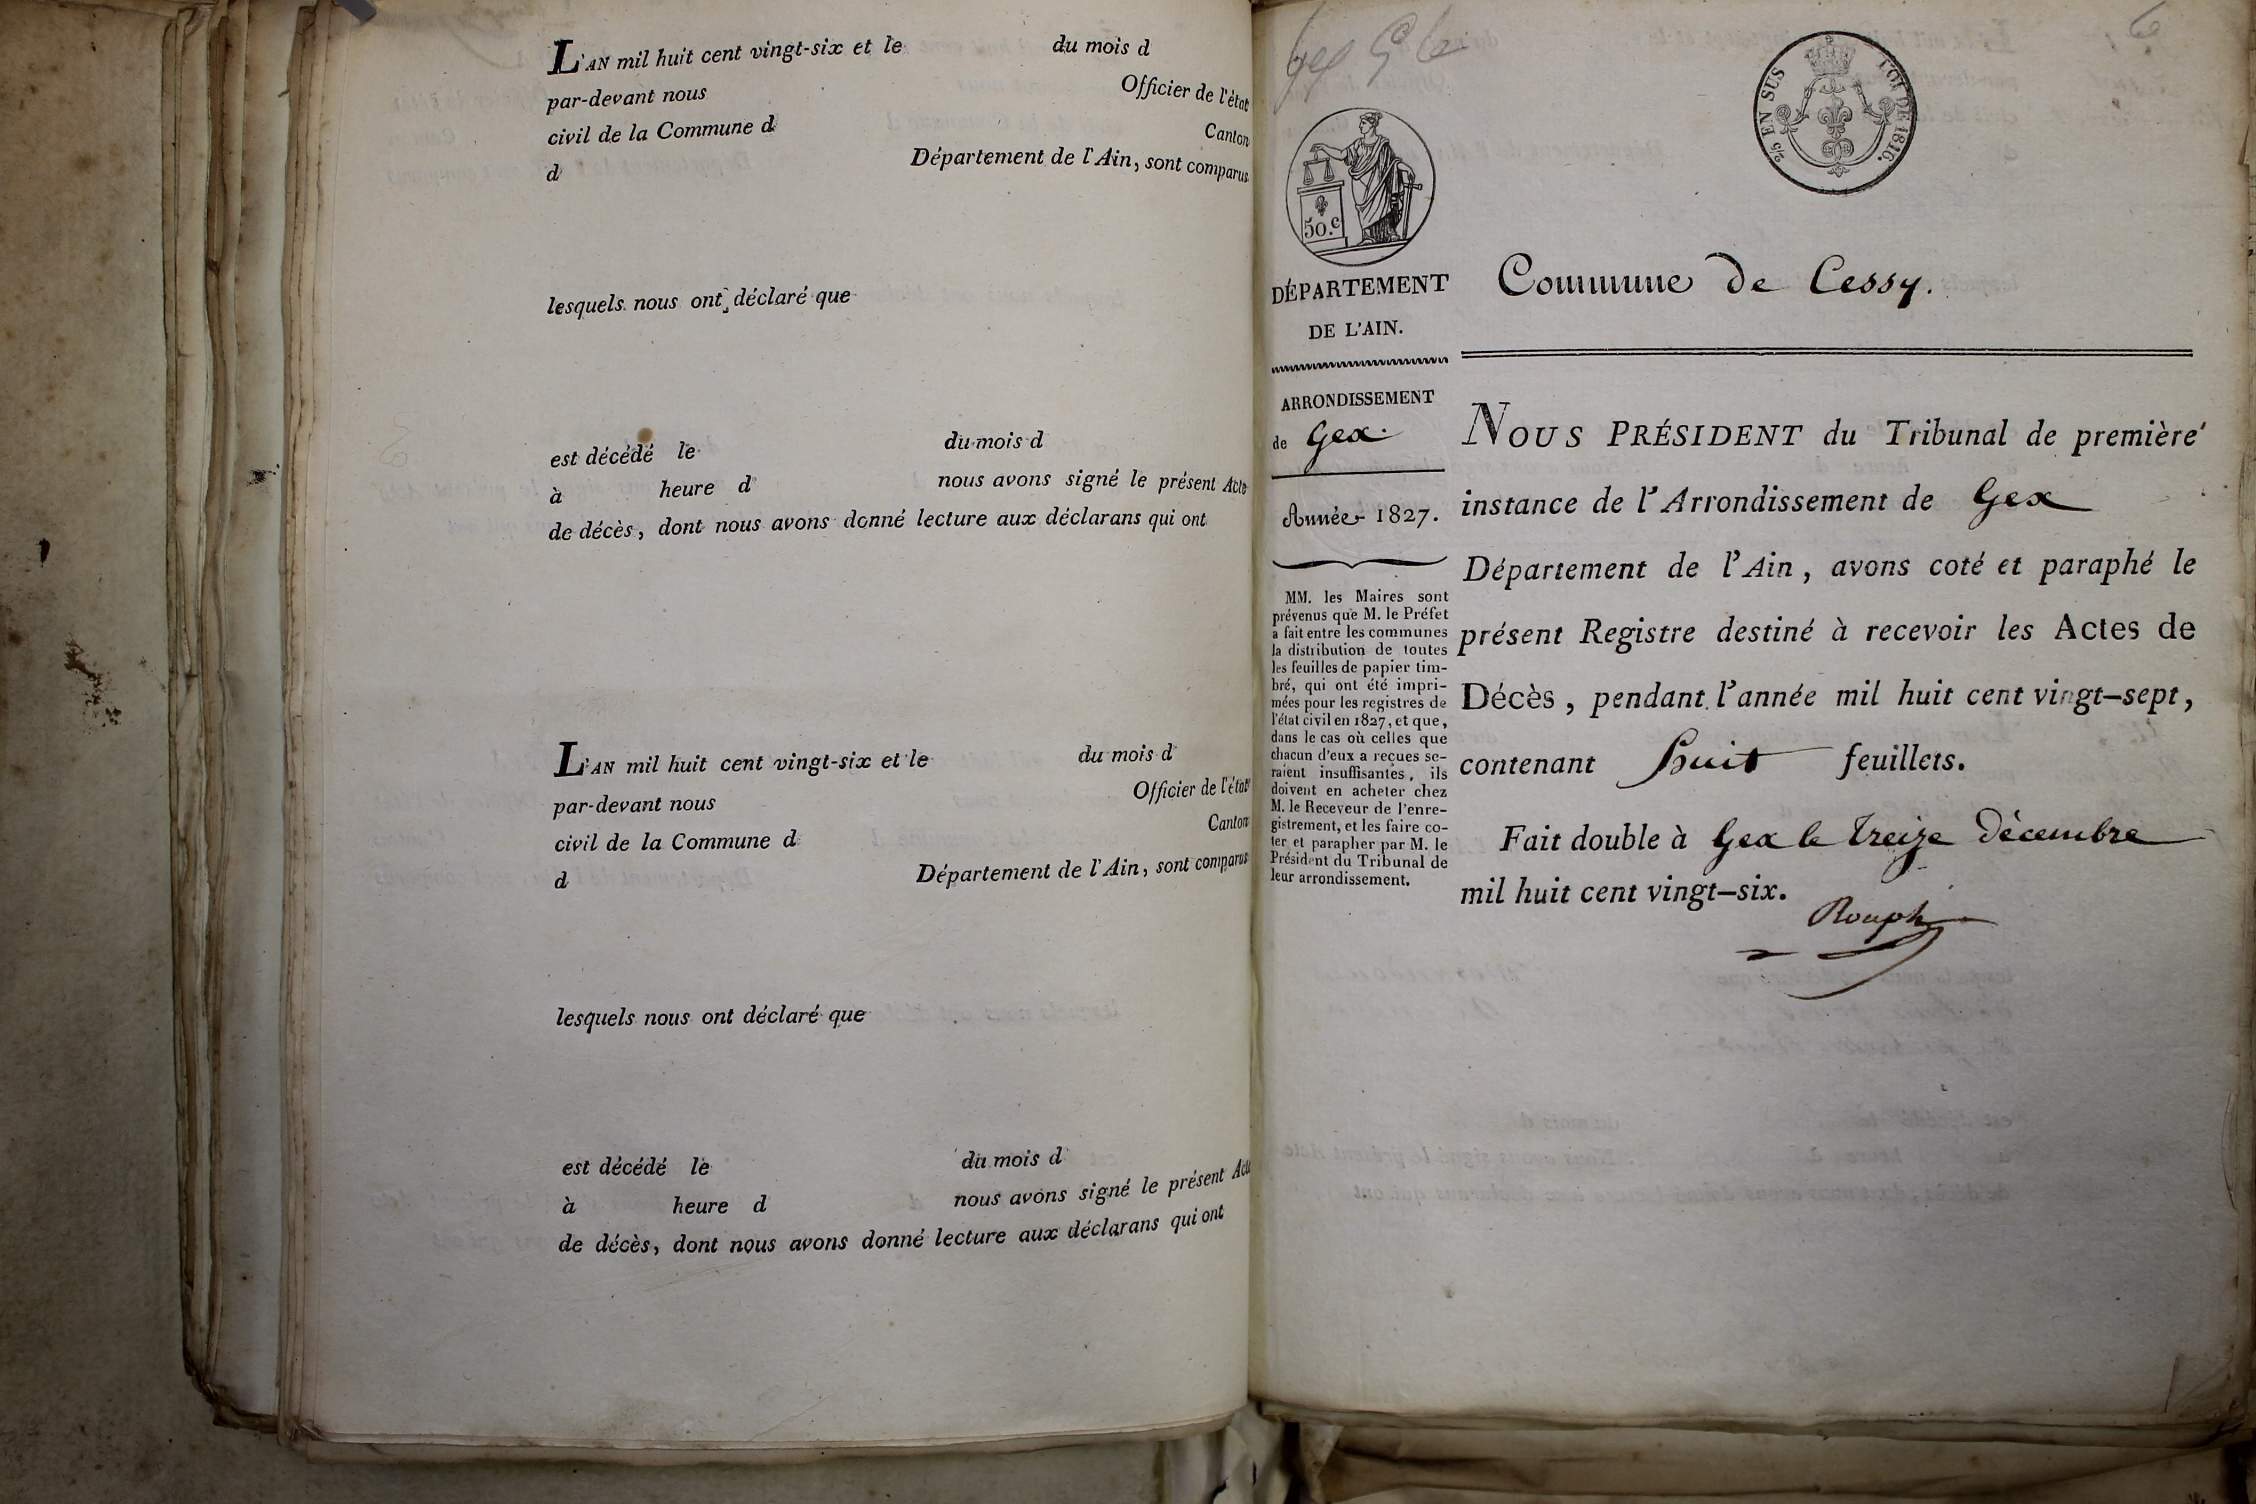 L'AN mil huit cent vingt-six et le du mois d
par-devant nous Officier de l'état
civil de la Commune d Canton
d Département de l'Ain, sont comparus
lesquels nous ont déclaré que
est décédé le du mois d
à heure d nous avons signé le présent Acte
de décès, dont nous avons donné lecture aux déclarans qui ont
L'AN mil huit cent vingt-six et le du mois d
par-devant nous Officier de l'état
civil de la Commune d Canton
d Département de l'Ain, sont comparus
lesquels nous ont déclaré que
est décédé le du mois d
à heure d nous avons signé le présent Acte
de décès, dont nous avons donné lecture aux déclarans qui ont
2/5 EN SUS LOI DE 1816.
50.c
DÉPARTEMENT
DE L'AIN.
ARRONDISSEMENT
de Gex.
Année 1827.
MM. les Maires sont
prévenus que M. le Préfet
a fait entre les communes
la distribution de toutes
les feuilles de papier tim-
bré, qui ont été impri-
mées pour les registres de
l'état civil en 1827, et que,
dans le cas où celles que
chacun d'eux a reçues se-
raient insuffisantes, ils
doivent en acheter chez
M. le Receveur de l'enre-
gistrement, et les faire co-
ter et parapher par M. le
Président du Tribunal de
leur arrondissement.
Commune de Cessy.
NOUS PRÉSIDENT du Tribunal de première
instance de l'Arrondissement de Gex
Département de l'Ain, avons coté et paraphé le
présent Registre destiné à recevoir les Actes de
Décès, pendant l'année mil huit cent vingt-sept,
contenant huit feuillets.
Fait double à Gex le treize décembre
mil huit cent vingt-six.
Rouph